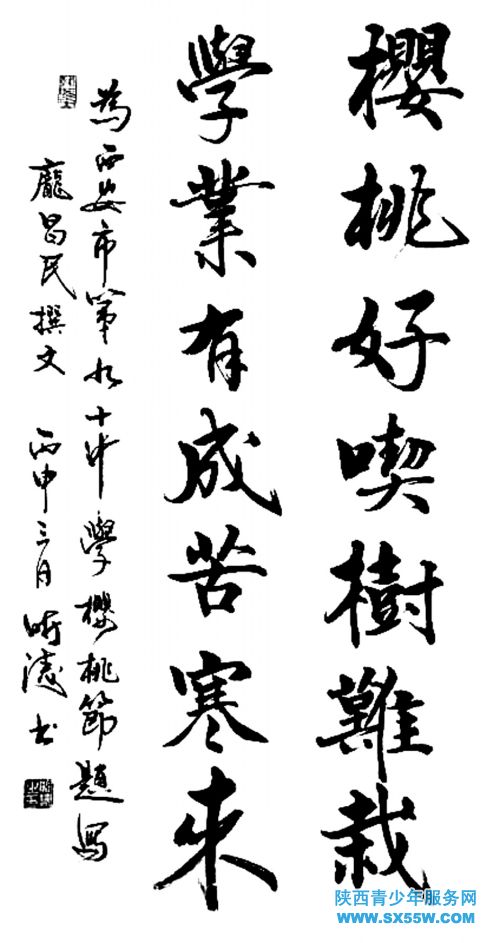 櫻桃好喫樹難栽
學業有成苦寒來
為西安市第九十中學櫻桃節題寫
龐昌民撰文 丙申三月 时濤书
陕西青少年服务网
www.sx55w.com